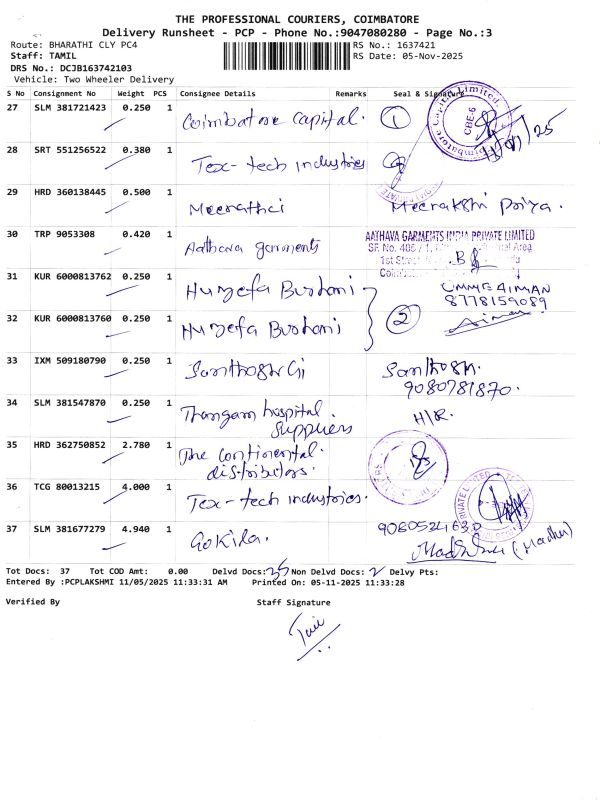 THE PROFESSIONAL COURIERS, COIMBATORE
Delivery Runsheet - PCP - Phone No.:9047080280 - Page No.:3
Route: BHARATHI CLY PC4 RS No.: 1637421
Staff: TAMIL RS Date: 05-Nov-2025
DRS No.: DCJB163742103
Vehicle: Two Wheeler Delivery
S No Consignment No Weight PCS Consignee Details Remarks Seal & Signature
27 SLM 381721423 0.250 1 Coimbatore capital. 1
28 SRT 551256522 0.380 1 Tex-tech industries
29 HRD 360138445 0.500 1 Meerathai Meenakshi Priya.
30 TRP 9053308 0.420 1 Aathava garments
AATHAVA GARMENTS INDIA PRIVATE LIMITED
31 KUR 6000813762 0.250 1 Huzefa Burhani UMME AIMAN
8778159089
32 KUR 6000813760 0.250 1 Huzefa Burhani 2 Aiman
33 IXM 509180790 0.250 1 Santhosh Gi Santhosh.
9080781870.
34 SLM 381547870 0.250 1 Thangam hospital. H/R.
Suppliers
35 HRD 362750852 2.780 1 The continental.
distributors.
36 TCG 80013215 4.000 1 Tex-tech industries.
37 SLM 381677279 4.940 1 Gokila. 9080524630
(Madhu)
Tot Docs: 37 Tot COD Amt: 0.00 Delvd Docs: 35 Non Delvd Docs: 2 Delvy Pts:
Entered By :PCPLAKSHMI 11/05/2025 11:33:31 AM Printed On: 05-11-2025 11:33:28
Verified By Staff Signature